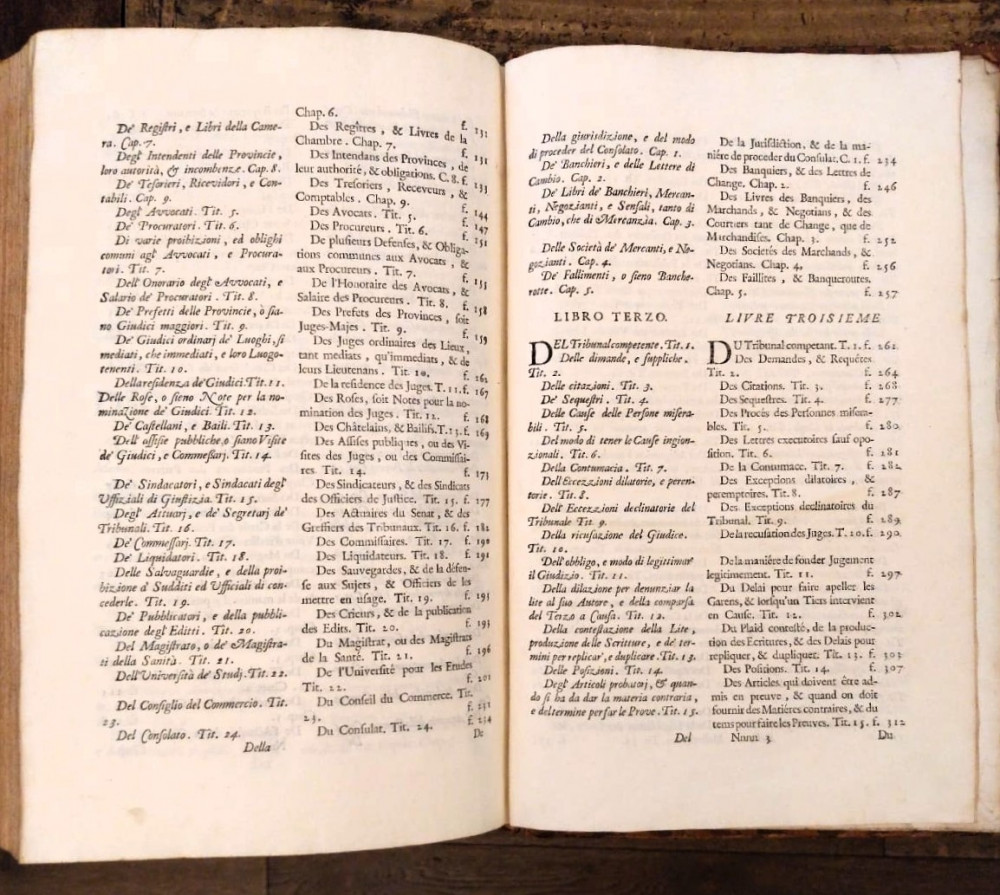 De' Registri, e Libri della Came-
ra. Cap. 7.
Degl' Intendenti delle Provincie,
loro autorità, & incombenze. Cap. 8.
De' Tesorieri, Ricevidori, e Con-
tabili. Cap. 9.
Degl' Avvocati. Tit. 5.
De' Procuratori. Tit. 6.
Di varie proibizioni, ed oblighi
comuni agl' Avvocati, e Procura-
tori. Tit. 7.
Dell' Onorario degl' Avvocati, e
Salario de' Procuratori. Tit. 8.
De' Prefetti delle Provincie, ò sia-
no Giudici maggiori. Tit. 9.
De' Giudici ordinarj de' Luoghi, sì
mediati, che immediati, e loro Luogo-
tenenti. Tit. 10.
Della residenza de' Giudici. Tit. 11.
Delle Rose, o sieno Note per la no-
minazione de' Giudici. Tit. 12.
De' Castellani, e Baili. Tit. 13.
Dell' assisie pubbliche, o siano Visite
de' Giudici, e Commessarj. Tit. 14.
De' Sindacatori, e Sindacati degl'
Uffiziali di Giustizia. Tit. 15.
Degl' Attuarj, e de' Segretarj de'
Tribunali. Tit. 16.
De' Commessarj. Tit. 17.
De' Liquidatori. Tit. 18.
Delle Salvaguardie, e della proi-
bizione a' Sudditi ed Ufficiali di con-
cederle. Tit. 19.
De' Pubblicatori, e della pubbli-
cazione degl' Editti. Tit. 20.
Del Magistrato, o de' Magistra-
ti della Sanità. Tit. 21.
Dell' Università de' Studj. Tit. 22.
Del Consiglio del Commercio. Tit.
23.
Del Consolato. Tit. 24.
Della
Chap. 6. f. 131
Des Regîtres, & Livres de la
Chambre. Chap. 7. f. 131
Des Intendans des Provinces, de
leur authorité, & obligations. C. 8. f. 133
Des Tresoriers, Receveurs, &
Comptables. Chap. 9. f. 144
Des Avocats. Tit. 5. f. 147
Des Procureurs. Tit. 6. f. 151
De plusieurs Defenses, & Obliga-
tions communes aux Avocats, &
aux Procureurs. Tit. 7. f. 155
De l'Honoraire des Avocats, &
Salaire des Procureurs. Tit. 8. f. 158
Des Prefets des Provinces, soit
Juges-Majes. Tit. 9. f. 159
Des Juges ordinaires des Lieux,
tant mediats, qu'immediats, & de
leurs Lieutenans. Tit. 10. f. 162
De la residence des Juges. T. 11. f. 167
Des Roses, soit Notes pour la no-
mination des Juges. Tit. 12. f. 168
Des Châtelains, & Baillifs. T. 13. f. 169
Des Assises publiques, ou des Vi-
sites des Juges, ou des Commissai-
res. Tit. 14. f. 173
Des Sindicateurs, & des Sindicats
des Officiers de Justice. Tit. 15. f. 177
Des Actuaires du Senat, & des
Greffiers des Tribunaux. Tit. 16. f. 182
Des Commissaires. Tit. 17. f. 190
Des Liquidateurs. Tit. 18. f. 191
Des Sauvegardes, & de la défen-
se aux Sujets, & Officiers de les
mettre en usage. Tit. 19. f. 193
Des Crieurs, & de la publication
des Edits. Tit. 20. f. 193
Du Magistrat, ou des Magistrats
de la Santé. Tit. 21. f. 196
De l'Université pour les Etudes
Tit. 22. f. 201
Du Conseil du Commerce. Tit.
23. f. 231
Du Consulat. Tit. 24. f. 234
De
Della giurisdizione, e del modo
di proceder del Consolato. Cap. 1.
De' Banchieri, e delle Lettere di
Cambio. Cap. 2.
De' Libri de' Banchieri, Mercan-
ti, Negozianti, e Sensali, tanto di
Cambio, che di Mercanzia. Cap. 3.
Delle Società de' Mercanti, e Ne-
gozianti. Cap. 4.
De' Fallimenti, o sieno Banche-
rotte. Cap. 5.
LIBRO TERZO.
DEL Tribunal competente. Tit. 1.
Delle dimande, e suppliche.
Tit. 2.
Delle citazioni. Tit. 3.
De' Sequestri. Tit. 4.
Delle Cause delle Persone misera-
bili. Tit. 5.
Del modo di tener le Cause ingion-
zionali. Tit. 6.
Della Contumacia. Tit. 7.
Dell' Eccezzioni dilatorie, e peren-
torie. Tit. 8.
Dell' Eccezzioni declinatorie del
Tribunale Tit. 9.
Della ricusazione del Giudice.
Tit. 10.
Dell' obbligo, e modo di legittimar'
il Giudizio. Tit. 11.
Della dilazione per denunziar la
lite al suo Autore, e della comparsa
del Terzo a Causa. Tit. 12.
Della contestazione della Lite,
produzione delle Scritture, e de' ter-
mini per replicar', e duplicare. Tit. 13.
Delle Posizioni. Tit. 14.
Degl' Articoli probatorj, & quan-
do si ha da dar la materia contraria,
e del termine per far le Prove. Tit. 15.
Del
De la Jurisdiction, & de la ma-
nière de proceder du Consulat. C. 1. f. 234
Des Banquiers, & des Lettres de
Change. Chap. 2. f. 246
Des Livres des Banquiers, des
Marchands, & Negotians, & des
Courtiers tant de Change, que de
Marchandises. Chap. 3. f. 252
Des Societés des Marchands, &
Negotians. Chap. 4. f. 256
Des Faillites, & Banqueroutes.
Chap. 5. f. 257
LIVRE TROISIEME
DU Tribunal competant. T. 1. f. 261
Des Demandes, & Requêtes
Tit. 2. f. 264
Des Citations. Tit. 3. f. 268
Des Sequestres. Tit. 4. f. 277
Des Procés des Personnes misera-
bles. Tit. 5. f. 280
Des Lettres executoires sauf opo-
sition. Tit. 6. f. 281
De la Contumace. Tit. 7. f. 282
Des Exceptions dilatoires, &
peremptoires. Tit. 8. f. 287
Des Exceptions declinatoires du
Tribunal. Tit. 9. f. 289
De la recusation des Juges. T. 10. f. 290
De la manière de fonder Jugement
legitimement. Tit. 11. f. 297
Du Delai pour faire apeller les
Garens, & lorsqu'un Tiers intervient
en Cause. Tit. 12. f. 302
Du Plaid contesté, de la produc-
tion des Ecritures, & des Delais pour
repliquer, & dupliquer. Tit. 13. f. 303
Des Positions. Tit. 14. f. 307
Des Articles qui doivent être ad-
mis en preuve, & quand on doit
fournir des Matiéres contraires, & du
tems pour faire les Preuves. Tit. 15. f. 312
Nnnn 3 Du